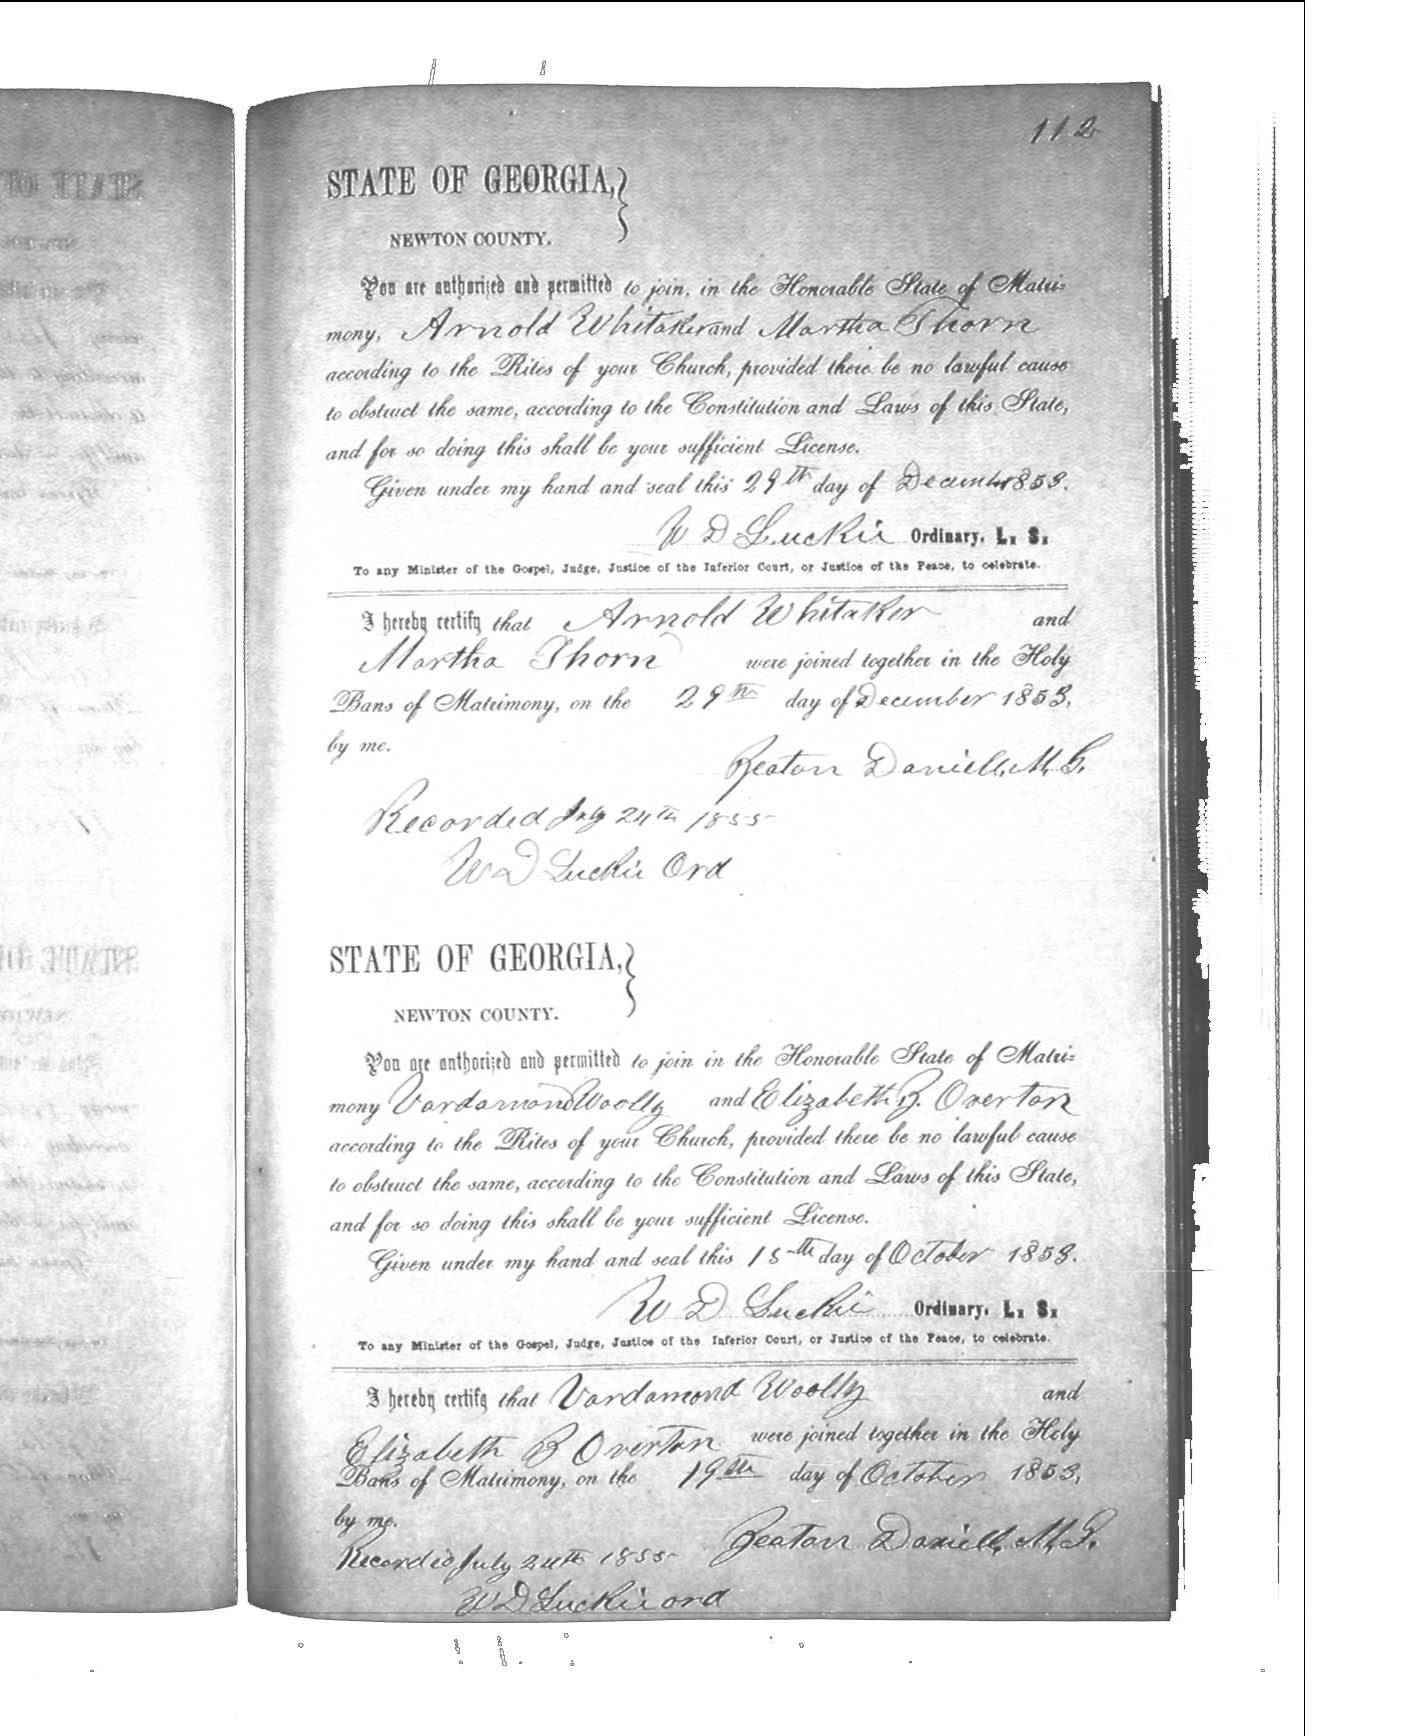 112
STATE OF GEORGIA,
NEWTON COUNTY.
You are authorized and permitted to join, in the Honorable State of Matri-
mony, Arnold Whitaker and Martha Thorn
according to the Rites of your Church, provided there be no lawful cause
to obstruct the same, according to the Constitution and Laws of this State,
and for so doing this shall be your sufficient License.
Given under my hand and seal this 29th day of December 1853.
W D Luckie Ordinary. L. S.
To any Minister of the Gospel, Judge, Justice of the Inferior Court, or Justice of the Peace, to celebrate.
I hereby certify that Arnold Whitaker and
Martha Thorn were joined together in the Holy
Bans of Matrimony, on the 29th day of December 1853,
by me.
Beaton Daniell, M. G.
Recorded July 24th 1855
W D Luckie Ord
STATE OF GEORGIA,
NEWTON COUNTY.
You are authorized and permitted to join in the Honorable State of Matri-
mony Vardamond Woolly and Elizabeth B. Overton
according to the Rites of your Church, provided there be no lawful cause
to obstruct the same, according to the Constitution and Laws of this State,
and for so doing this shall be your sufficient License.
Given under my hand and seal this 15th day of October 1853.
W D Luckie Ordinary. L. S.
To any Minister of the Gospel, Judge, Justice of the Inferior Court, or Justice of the Peace, to celebrate.
I hereby certify that Vardamond Woolly and
Elizabeth B Overton were joined together in the Holy
Bans of Matrimony, on the 19th day of October 1853,
by me.
Beaton Daniell, M. G.
Recorded July 24th 1855
W D Luckie ord